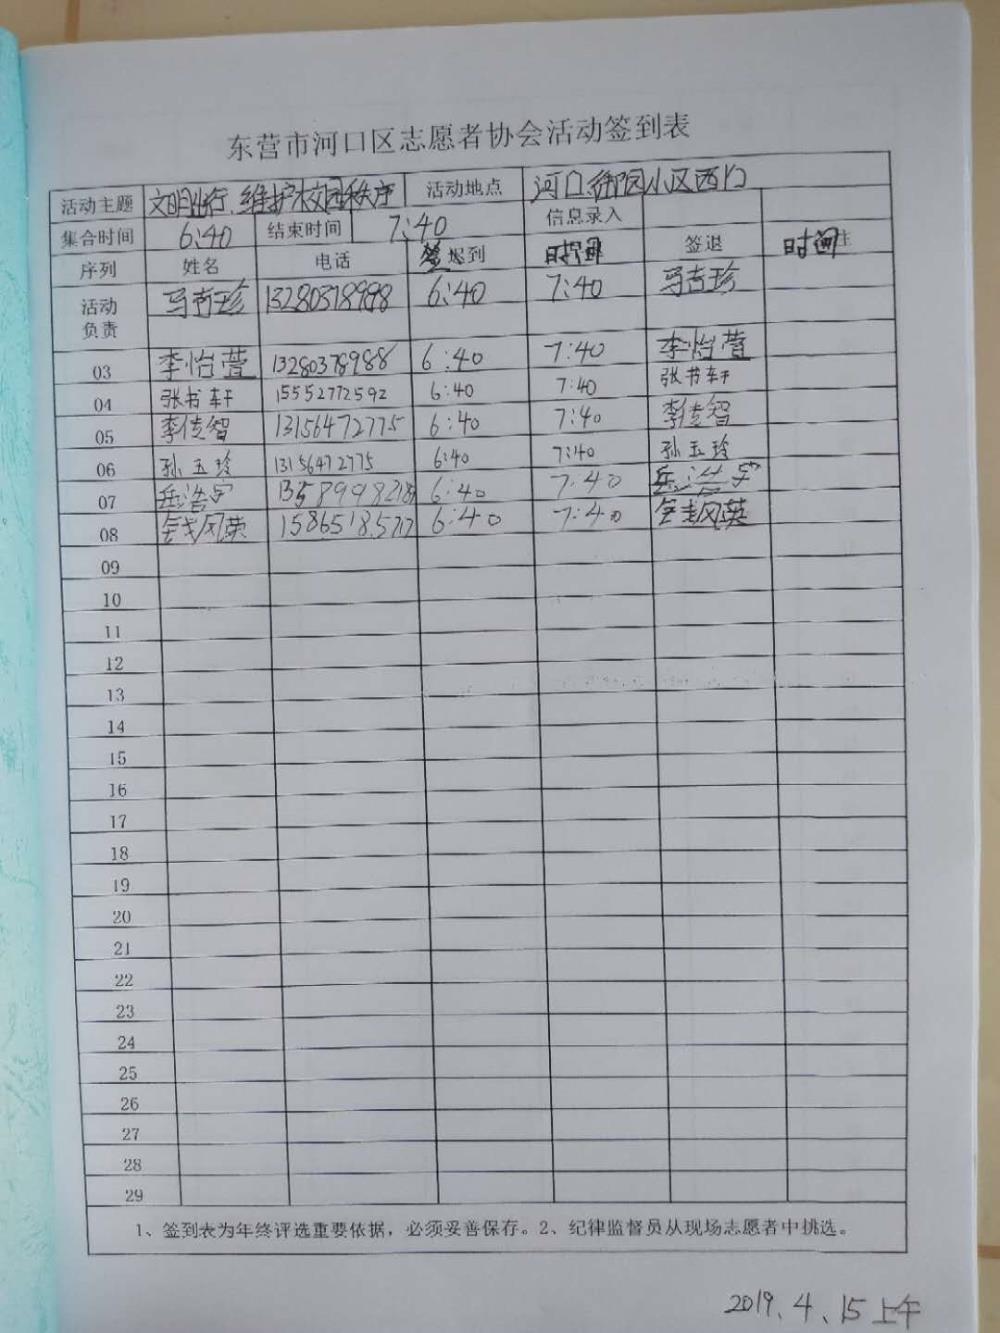 东营市河口区志愿者协会活动签到表
活动主题 文明出行、维护校园秩序 活动地点 河口御园小区西门
集合时间 6:40 结束时间 7:40 信息录入
序列 姓名 电话 迟到 签退 时间
活动负责 马吉珍 6:40 7:40 马吉珍
03 李怡萱 13280378988 6:40 7:40 李怡萱
04 张书轩 15552772592 6:40 7:40 张书轩
05 李传智 13156472775 6:40 7:40 李传智
06 孙玉玲 1315647 2775 6:40 7:40 孙玉玲
07 岳浩宇 6:40 7:40 岳浩宇
08 钱风英 6:40 7:40 钱风英
09
10
11
12
13
14
15
16
17
18
19
20
21
22
23
24
25
26
27
28
29
1、签到表为年终评选重要依据，必须妥善保存。2、纪律监督员从现场志愿者中挑选。
2019.4、15上午